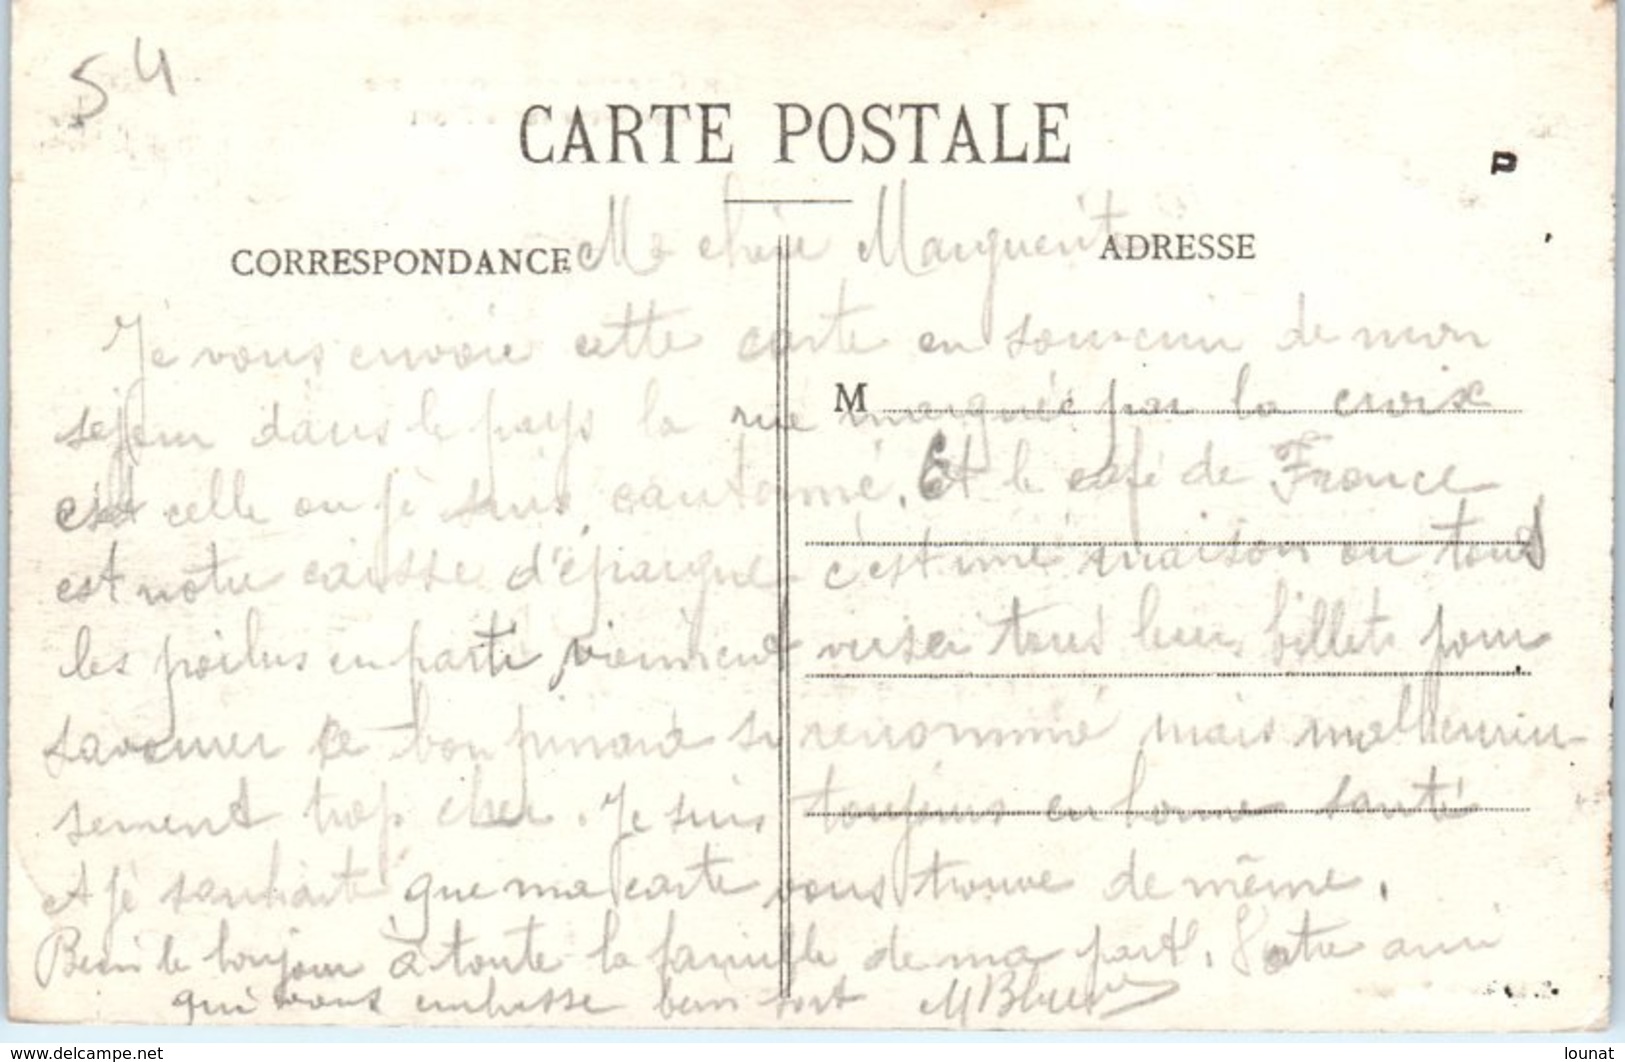 54
CARTE POSTALE
CORRESPONDANCE
ADRESSE
Ma chère Marguerite
Je vous envoie cette carte en souvenir de mon
M
sejour dans le pays la rue marquée par la croix
c'est celle ou je suis cantonné. Et le café de France
est notre caisse d'épargne c'est une maison ou tous
les poilus en parti viennent verser tous leurs billets pour
savourer ce bon pinard si renommé mais malheureu-
sement trop cher. Je suis toujours en bonne santé
et je souhaite que ma carte vous trouve de même.
Bien le bonjour à toute la famille de ma part. Votre ami
qui vous embrasse bien fort
www.delcampe.net
lounat